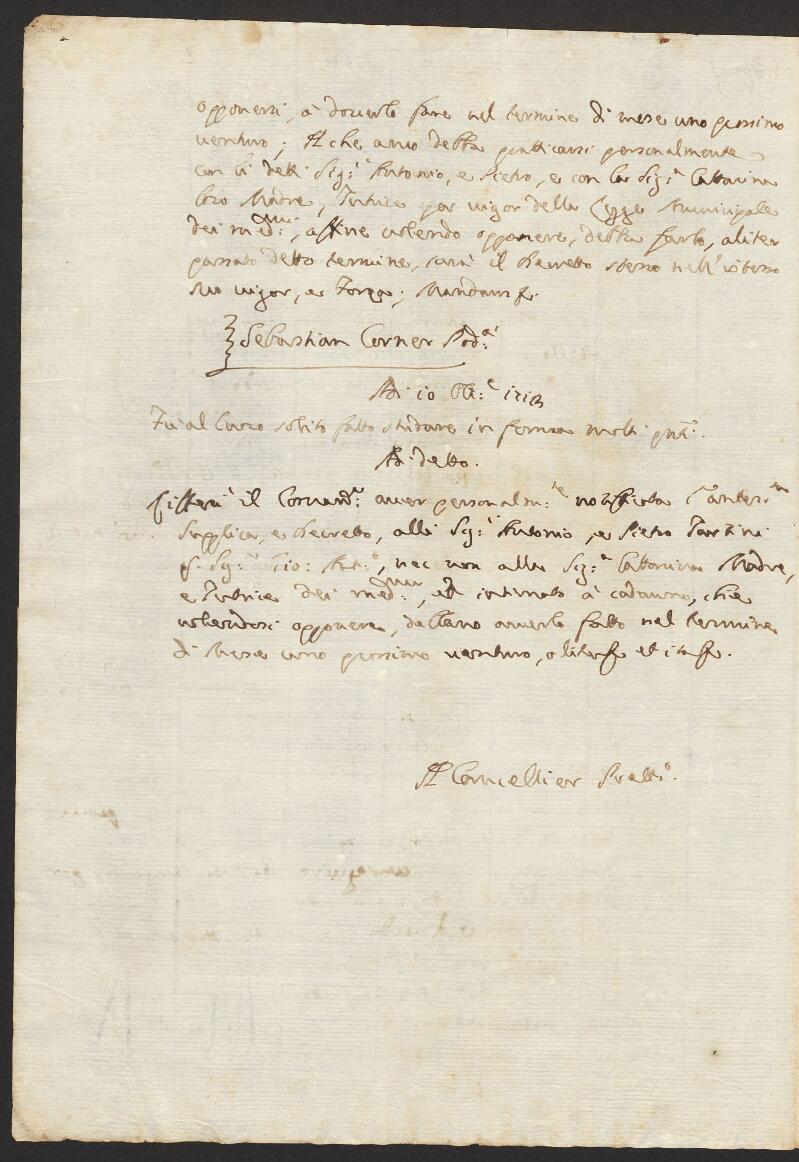 opponersi, à douerlo fare nel termine di mese uno prossimo
uenturo; Il che anco debba pratticarsi personalmente
con li detti Sig:ri Antonio, e Pietro, e con la Sig:ra Cattarina
loro Madre, Tutrice per uigor della Legge Municipale
dei med:mi, affine uolendo opponere, debba farlo, aliter
passato detto termine, sarà il Decretto stesso nell'istesso
suo uigor, e Forza; Mandans
Sebastian Corner Pod:à
Adi 10
Fù al loco solito fatto stridare in forma molti pnti.
Adi detto.
Rifferì il Comand:r auer personalm:te notifficata l'anteср:ta
Supplica, e Decretto, alli Sig:ri Antonio, e Pietro Tartini
q. Sig:r Gio: Ant:o, nec non alla Sig:ra Cattarina Madre,
e Tutrice dei med:mi, et intimato à cadauno, che
uolendosi opponere, debbano auerlo fatto nel termine
di Mese uno prossimo uenturo, aliter et ita
Il Cancellier Prett:o.